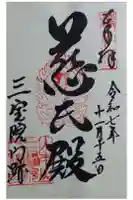 奉拝
令和七年
十一月十五日
慈氏殿
三宝院門跡